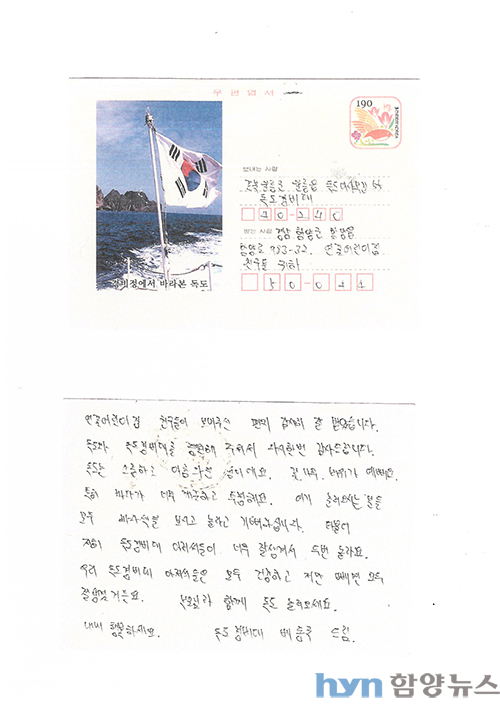 우편엽서
190
보내는 사람
경북 울릉군 울릉읍 독도이사부길 55
독도경비대
40-240
받는 사람 경남 함양군 함양읍
함양로 983-32. 연꽃어린이집
친구들 귀하
50-0
경비정에서 바라본 독도
연꽃어린이집 친구들이 보내주신 편지 감사히 잘 받았습니다.
독도와 독도경비대를 응원해 주셔서 다시한번 감사드립니다.
독도는 소중하고 아름다운 섬이예요. 꽃, 나무, 바위가 예뻐요.
특히 바다가 너무 깨끗하고 투명해요. 여기 놀러오시는 분들
모두 바다색을 보시고 놀라고 기뻐하십니다. 더불어
저희 독도경비대 아저씨들이 너무 잘생겨서 두번 놀라요.
우리 독도경비대 아저씨들은 모두 건강하고 저만 빼면 모두
잘생겼거든요. 부모님과 함께 독도 놀러오세요.
내내 행복하세요. 독도경비대 드림.
hyn 함양뉴스